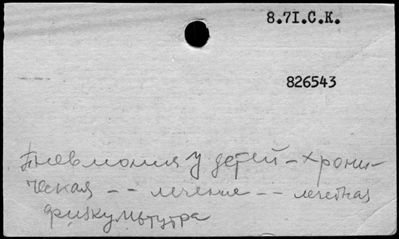 8.71.С.К.
826543
Пневмония у детей - хрони-
ческая -- лечение -- лечебная
физкультура